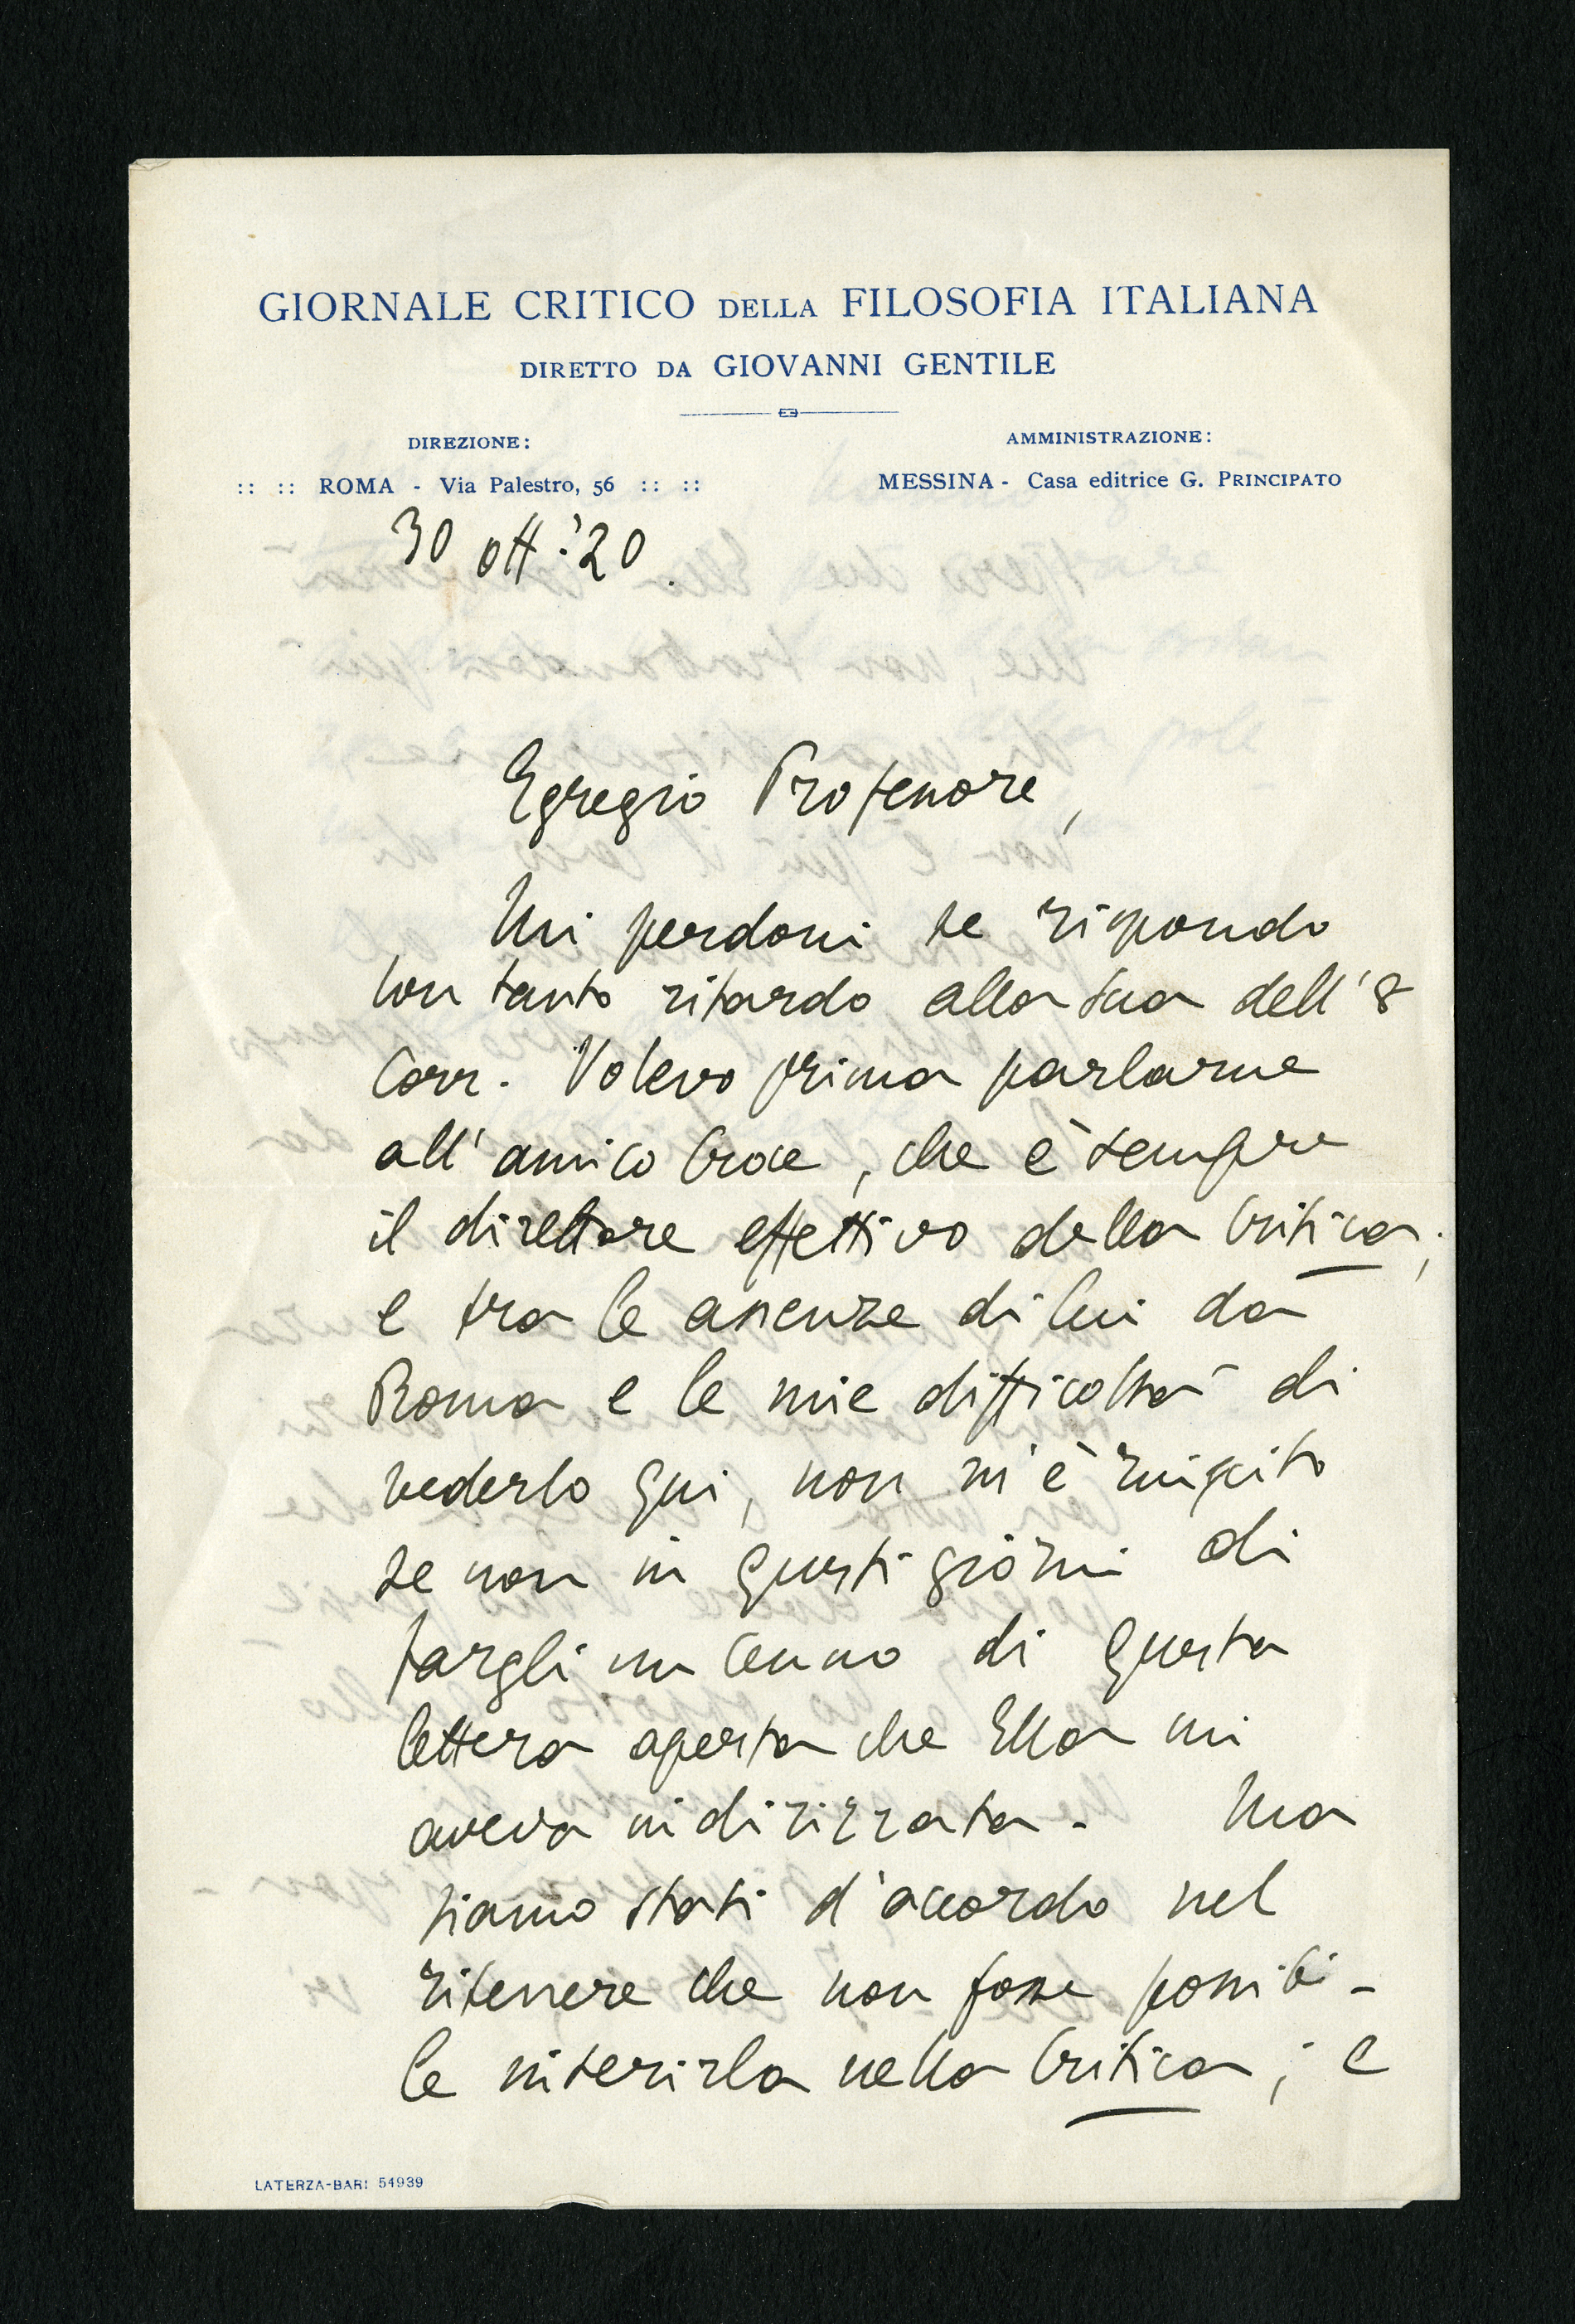 GIORNALE CRITICO DELLA FILOSOFIA ITALIANA
DIRETTO DA GIOVANNI GENTILE
DIREZIONE:
:: :: ROMA - Via Palestro, 56 :: ::
AMMINISTRAZIONE:
MESSINA - Casa editrice G. PRINCIPATO
30 ott. '20.
Egregio Professore,
Mi perdoni se rispondo
con tanto ritardo alla sua dell'8
corr. Volevo prima parlarne
all'amico Croce, che è sempre
il direttore effettivo della Critica;
e tra le assenze di lui da
Roma e le mie difficoltà di
vederlo qui, non m'è riuscito
se non in questi giorni di
fargli un cenno di questa
lettera aperta che Ella mi
aveva indirizzata. Ma
siamo stati d'accordo nel
ritenere che non fosse possibi-
le inserirla nella Critica; e
LATERZA-BARI 54939